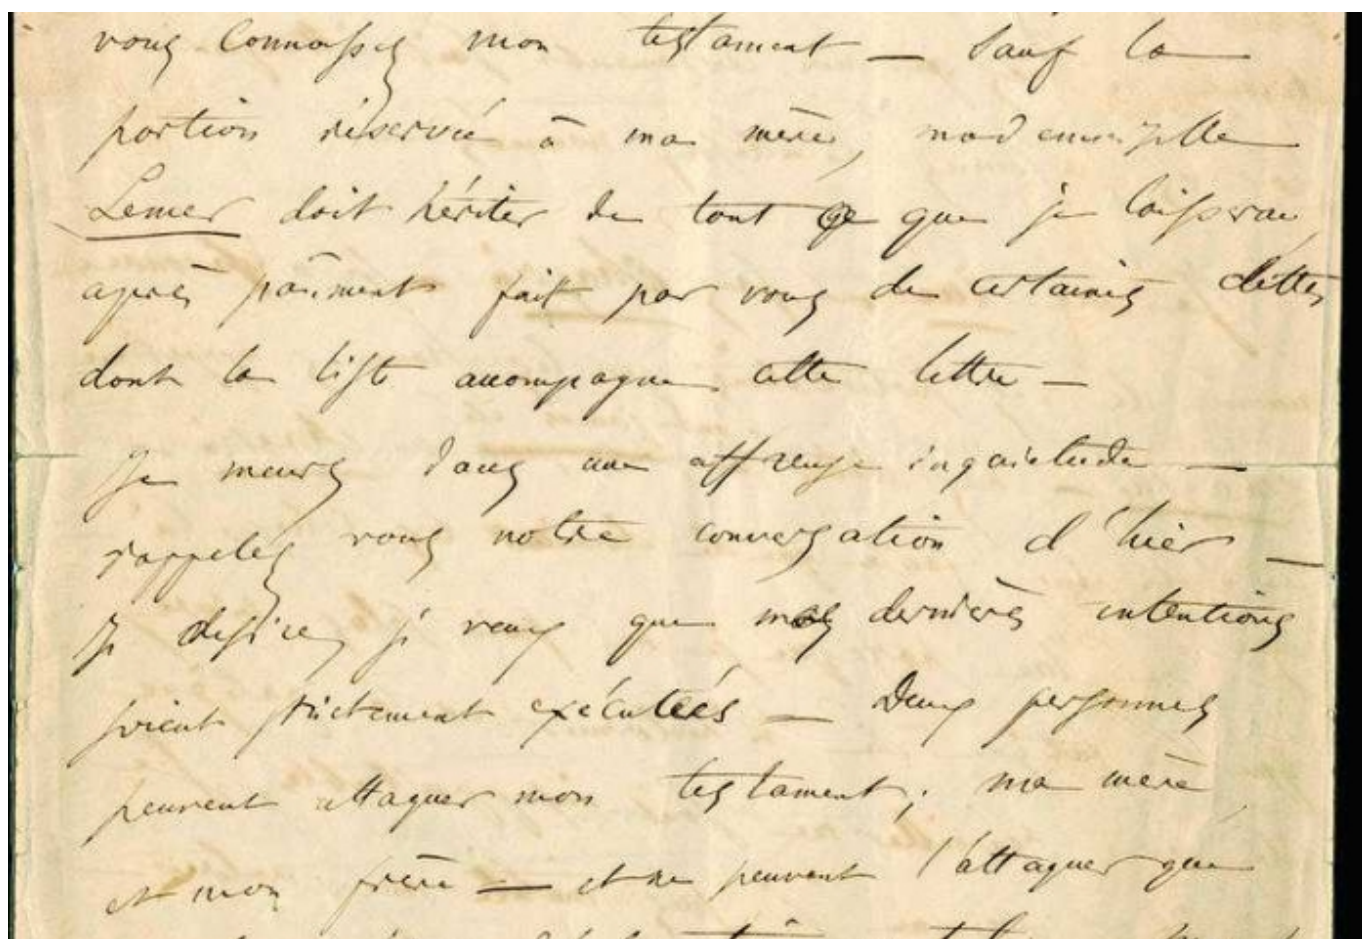 vous connaissez mon testament — Sauf la
portion réservée à ma mère, mademoiselle
Lemer doit hériter de tout ce que je laisserai,
après paîment fait par vous de certaines dettes
dont la liste accompagne cette lettre —
Je meurs dans une affreuse inquiétude —
rappelez vous notre conversation d'hier —
Je désire, je veux que mes dernières intentions
soient strictement exécutées — Deux personnes
peuvent attaquer mon testament; ma mère
et mon frère — et ne peuvent l'attaquer que